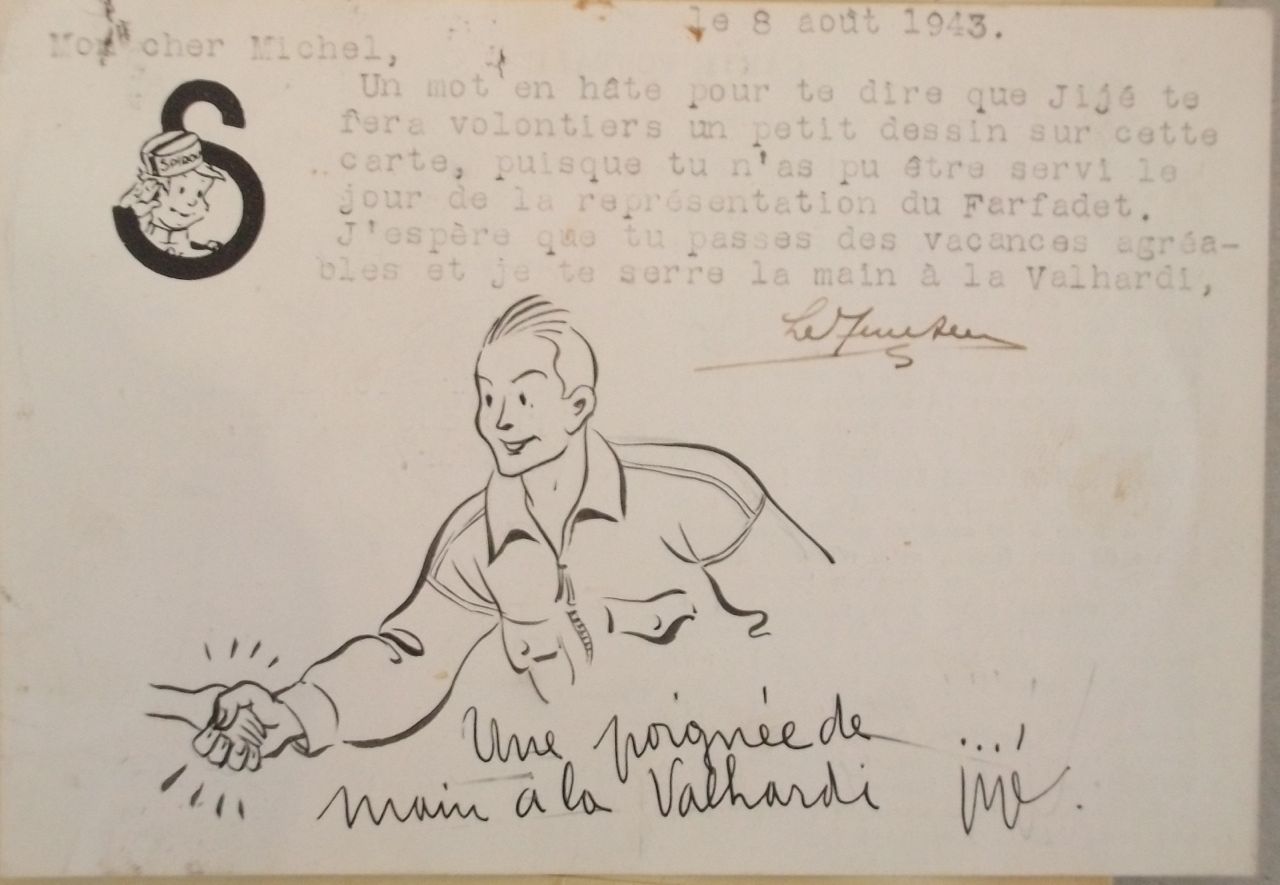 le 8 août 1943.
Mon cher Michel,
Un mot en hâte pour te dire que Jijé te
fera volontiers un petit dessin sur cette
carte, puisque tu n'as pu être servi le
jour de la représentation du Farfadet.
J'espère que tu passes des vacances agréa-
bles et je te serre la main à la Valhardi,
SPIROU
Une poignée de
main à la Valhardi
Jijé.